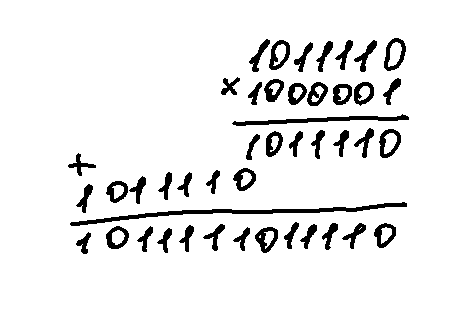 1011110
×1000001
1011110
+
1011110
1011111011110